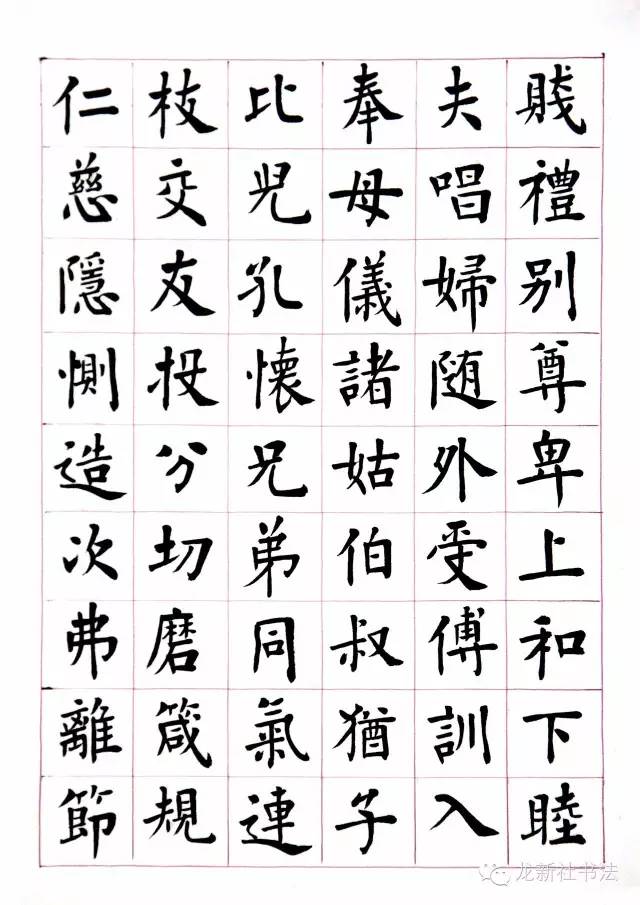 賤禮别尊卑上和下睦
夫唱婦随外受傅訓入
奉母儀諸姑伯叔猶子
比兒孔懐兄弟同氣連
枝交友投分切磨箴規
仁慈隱惻造次弗離節
龙新社书法